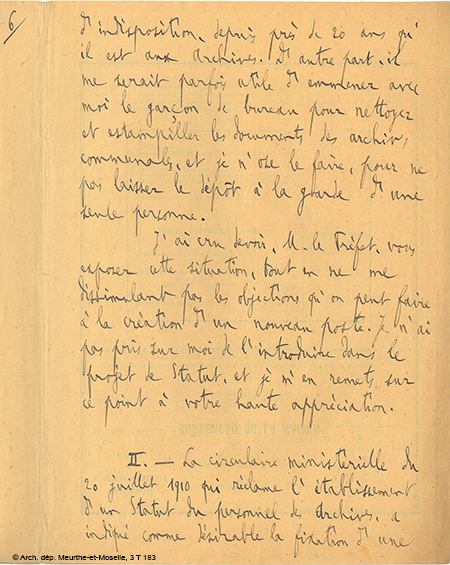 6/
d'indisposition, depuis près de 20 ans qu'
il est aux archives. D'autre part, il
me serait parfois utile d'emmener avec
moi le garçon de bureau pour nettoyer
et estampiller les documents des archives
communales, et je n'ose le faire, pour ne
pas laisser le dépôt à la garde d'une
seule personne.
J'ai cru devoir, M. le Préfet, vous
exposer cette situation, tout en ne me
dissimulant pas les objections qu'on peut faire
à la création d'un nouveau poste. Je n'ai
pas pris sur moi de l'introduire dans le
projet de Statut, et je m'en remets sur
ce point à votre haute appréciation.
II. — La circulaire ministérielle du
20 juillet 1910 qui réclame l'établissement
d'un Statut du personnel des archives, a
indiqué comme désirable la fixation d'une
© Arch. dép. Meurthe-et-Moselle, 3 T 183